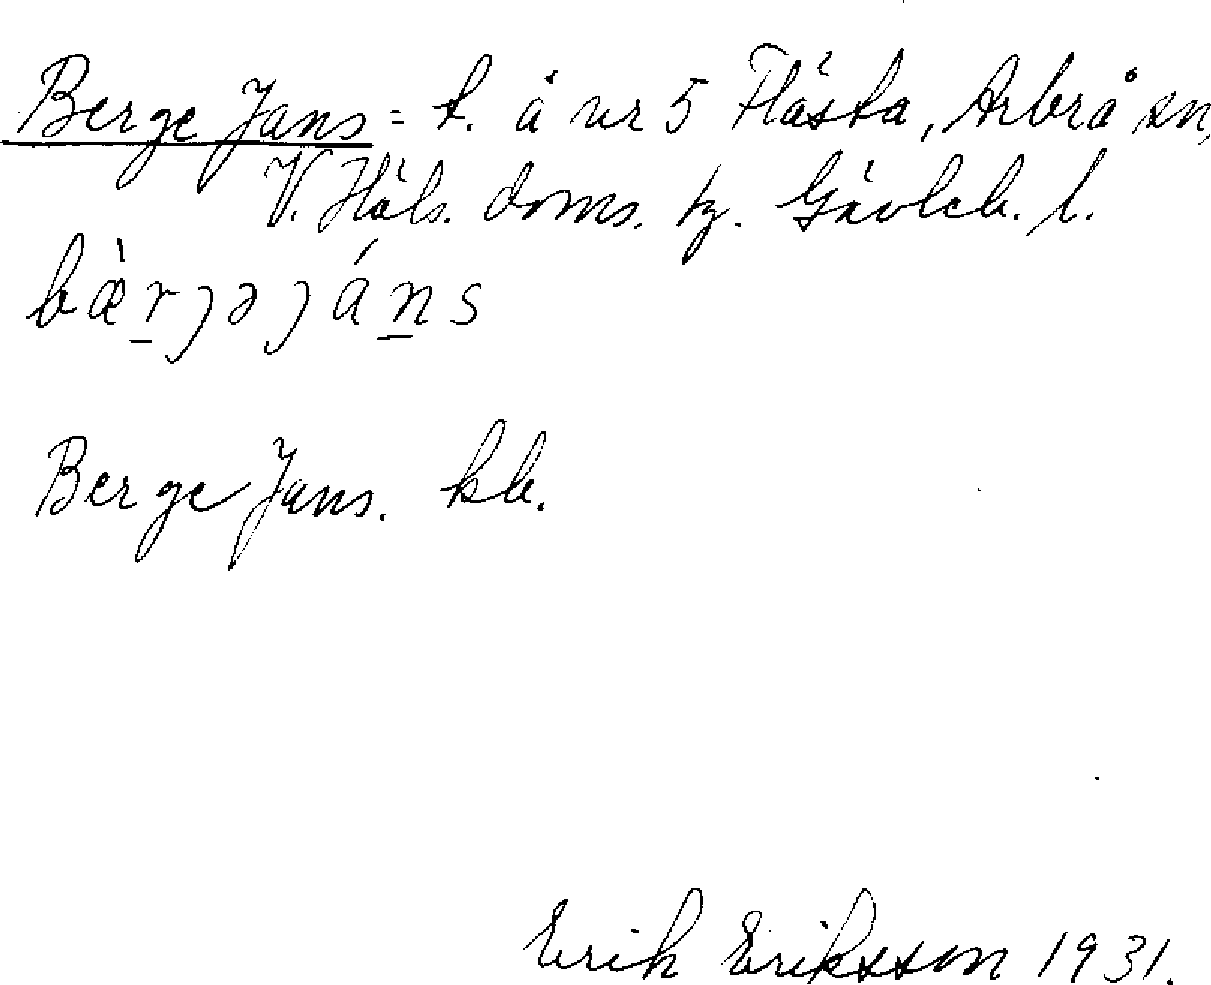 Berge Jans = t. å nr 5 Flästa, Arbrå sn,
V. Häls. doms. hg. Gävleb. l.
bæ̀r̠jəjáns
Berge Jans. kb.
Erik Eriksson 1931.